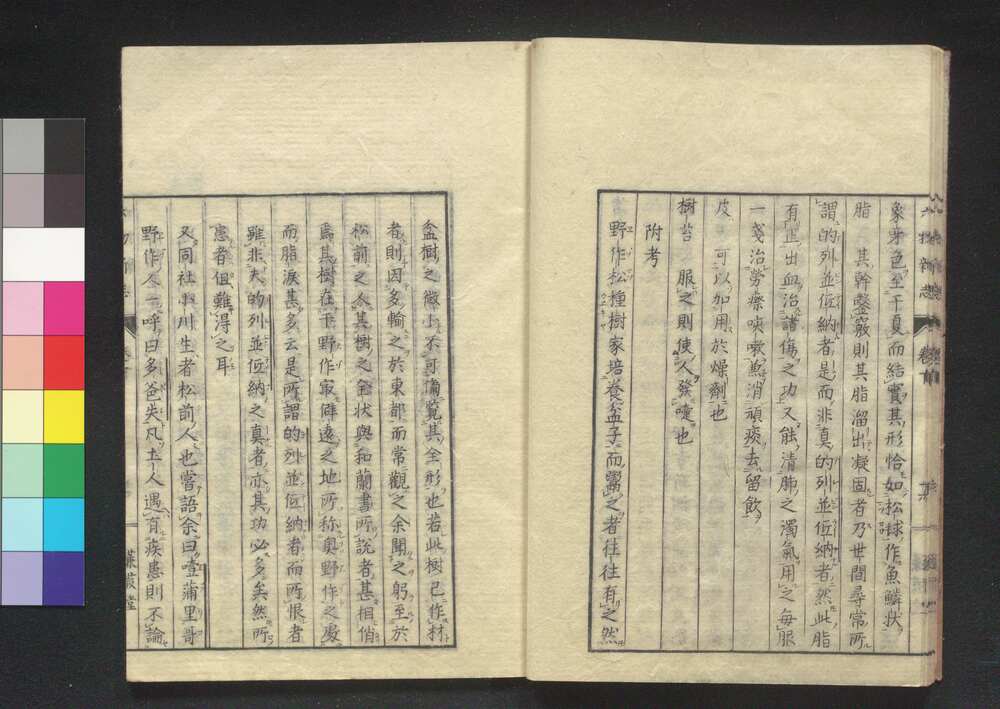 象牙色至于夏而結實其形恰如松球作魚鱗狀
脂　其幹鑿竅則其脂溜出凝固者乃世間尋常所
謂的列並㑚納者是而非真的列並㑚納者然此脂
有止出血治諸傷之功又能清肺之濁氣用之每服
一戔治勞瘵咳嗽煎消頑痰去留飲
皮　可以加用於燥劑也
樹苔　服之則使人發嚏也
附考
野作松種樹家培養盆子而鬻之者往往有之然
盆樹之微小不可備覧其全形也若此樹已作材
者則因多輸之於東都而常觀之余聞之躬至於
松前之人其樹之全状與和蘭書所説者甚相俏
爲其樹在于野作最僻遠之地所称奥野作之處
而脂淚甚多云是所謂的列並㑚納者而所恨者
雖非大的列並㑚納之真者亦其功必多矣然所
患者但難得之耳
又同社小川生者松前人也嘗語余曰蝦蒲里哥
野作人一呼曰多爸失凡土人遇有疾患則不論
蒹葭堂